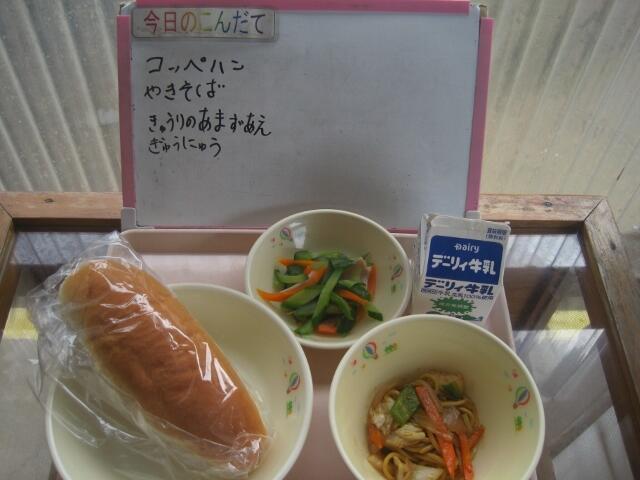 今日のこんだて
コッペパン
やきそば
きゅうりのあまずあえ
ぎゅうにゅう
Dairy
デーリィ牛乳
デーリィ牛乳